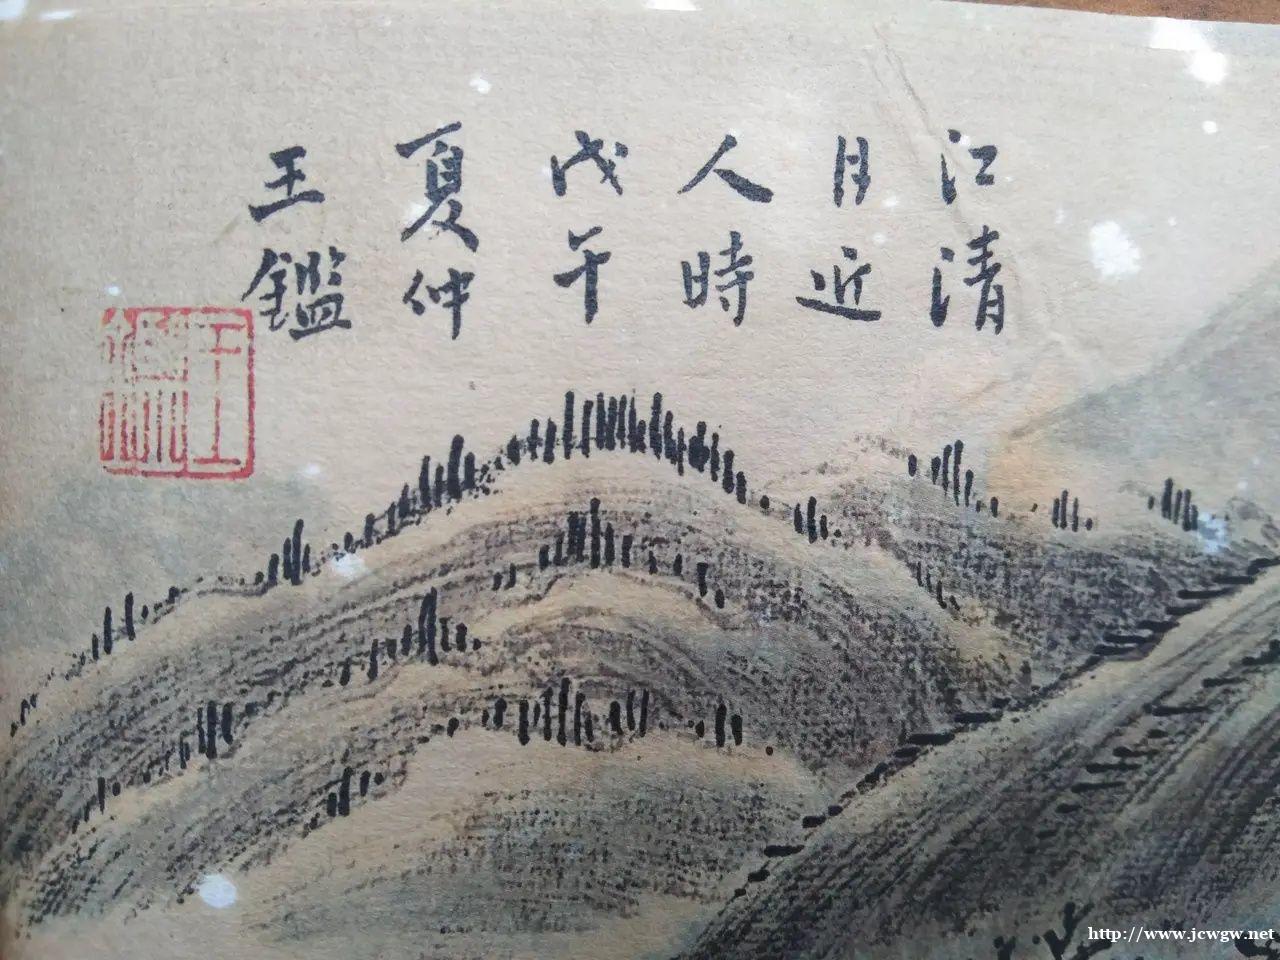 江清
月近
人時
戊午
夏仲
王鑑
王鑑
http://www.jcwgw.net